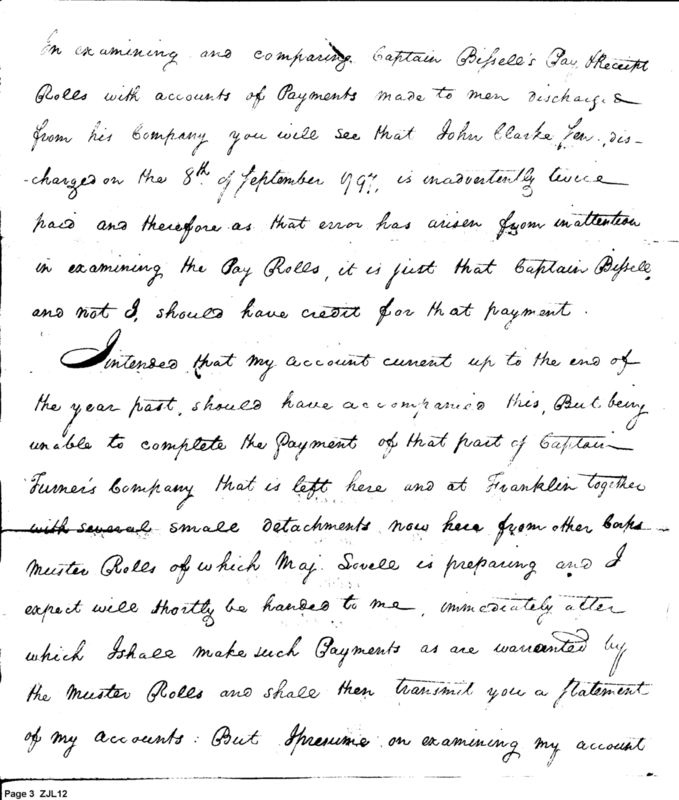 In examining and comparing Captain Bissell's Pay & Receipt
Rolls with accounts of Payments made to men discharged
from his Company you will see that John Clarke Sen. dis-
-charged on the 8th of September 1797, is inadvertently twice
paid and therefore as that error has arisen from inattention
in examining the Pay Rolls, it is just that Captain Bissell
and not I, should have credit for that payment.
I intended that my account current up to the end of
the year past, should have accompanied this, But being
unable to complete the Payment of that part of Captain
Turner's Company that is left here and at Franklin together
with several small detachments now here from other Corps
Muster Rolls of which Maj. Lovell is preparing and I
expect will shortly be handed to me, immediately after
which I shall make such Payments as are warranted by
the Muster Rolls and shall then transmit you a statement
of my accounts: But I presume on examining my account
Page 3 ZJL12